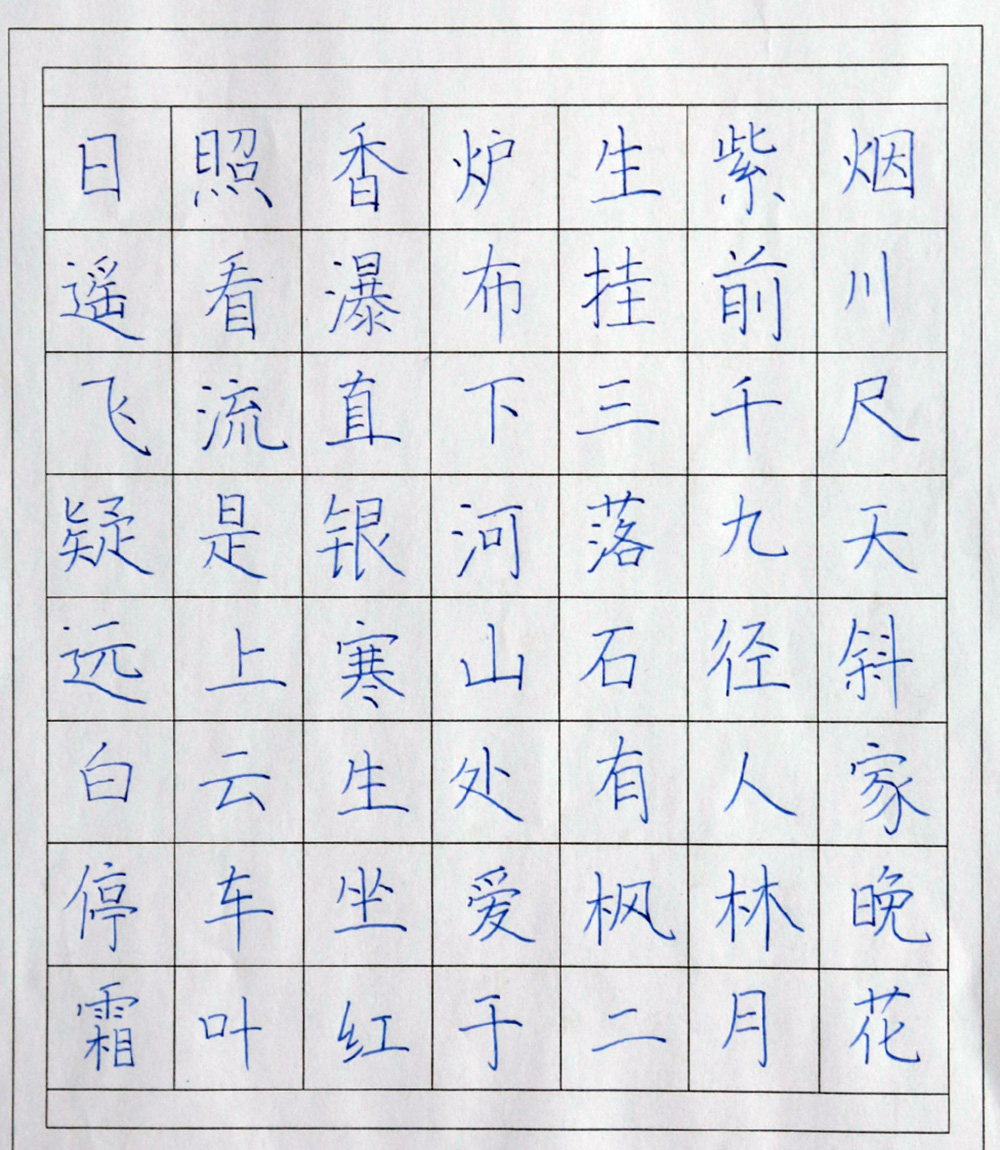 日照香炉生紫烟
遥看瀑布挂前川
飞流直下三千尺
疑是银河落九天
远上寒山石径斜
白云生处有人家
停车坐爱枫林晚
霜叶红于二月花